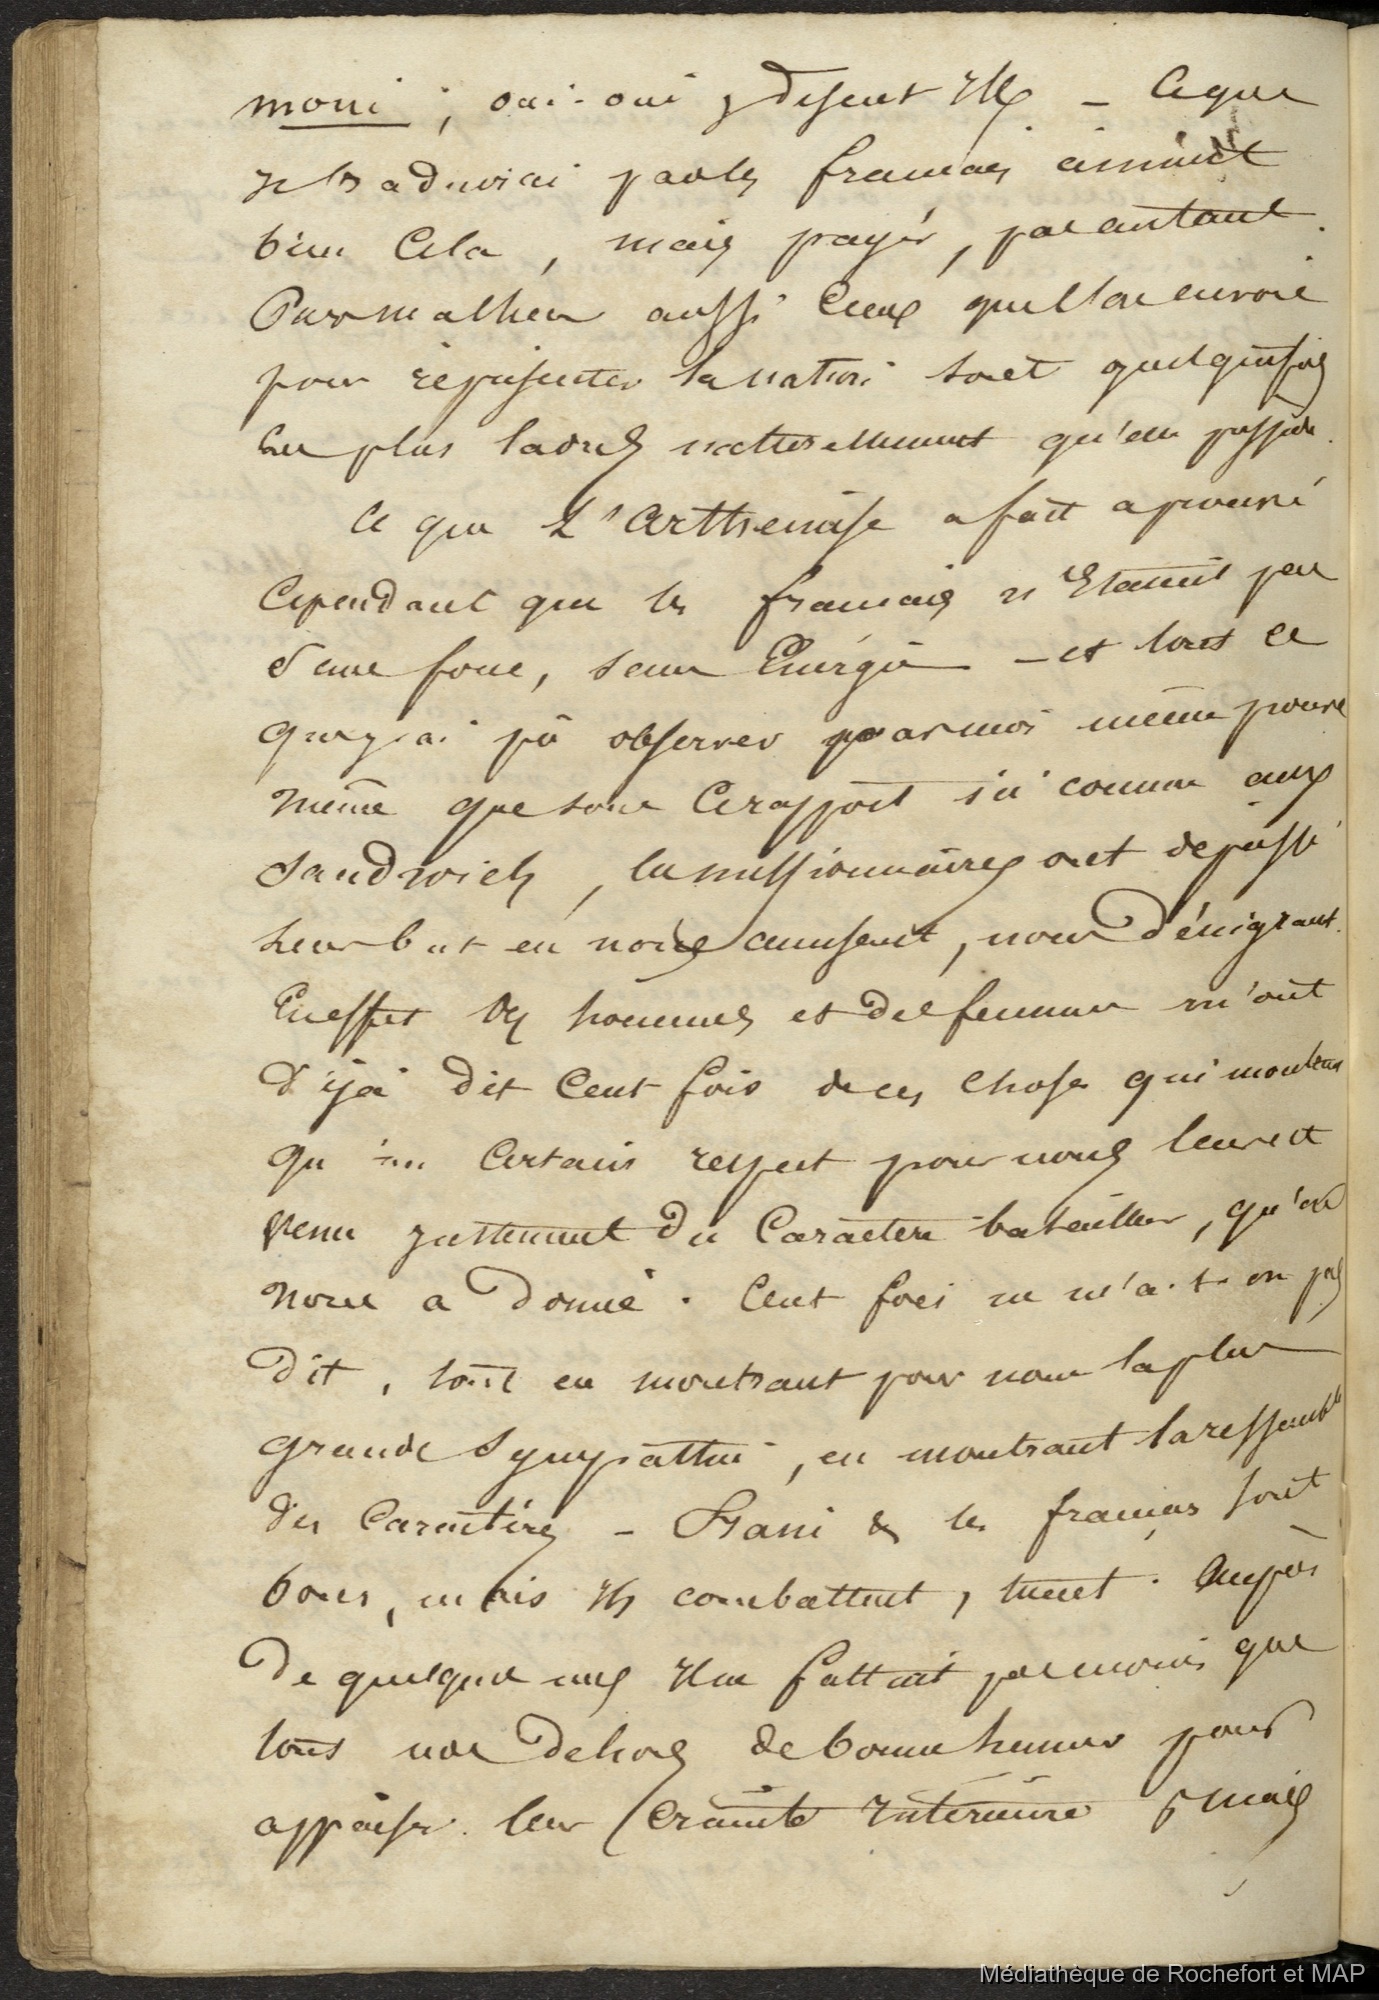 moni ; oui. oui, disent Ils – Ce que
Je traduirai par les francais aiment
bien Cela, mais payér, pas autant.
Par malheur aussi Ceux quel'on envoie
pour réprésenter la nation sont quelquefois
les plus ladres naturellement qu'elle possède.
Ce que L'Arthemise a fait a prouvé
Cependant que les francais n'Etaient pas
sans force, sans Energie – et tout ce
que j'ai pû observer par moi même prouve
même que sous Ce rapport ici comme aux
Sandwich, les missionnaires ont depassé
leur but en nous accusant, nous Dénigrant.
En effet des hommes et des femmes m'ont
Déjà dit Cent fois de ces choses qui montrent
qu'un Certain respect pour nous leur est
Venu justement du Caractere batailleur, qu'on
nous a donné. Cent fois ne m'a-t-on pas
Dit, tout en montrant pour nous la plus
grande Sympathie, en montrant la ressemblce
des Caractères – Frani & les francais sont
bons, mais Ils combattent, tuent. Auprès
De quelques uns Il ne fallait pas moins que
tous nos Dehors de bonne humeur pour
appaiser leur Crainte Intérieure, mais
Médiathèque de Rochefort et MAP